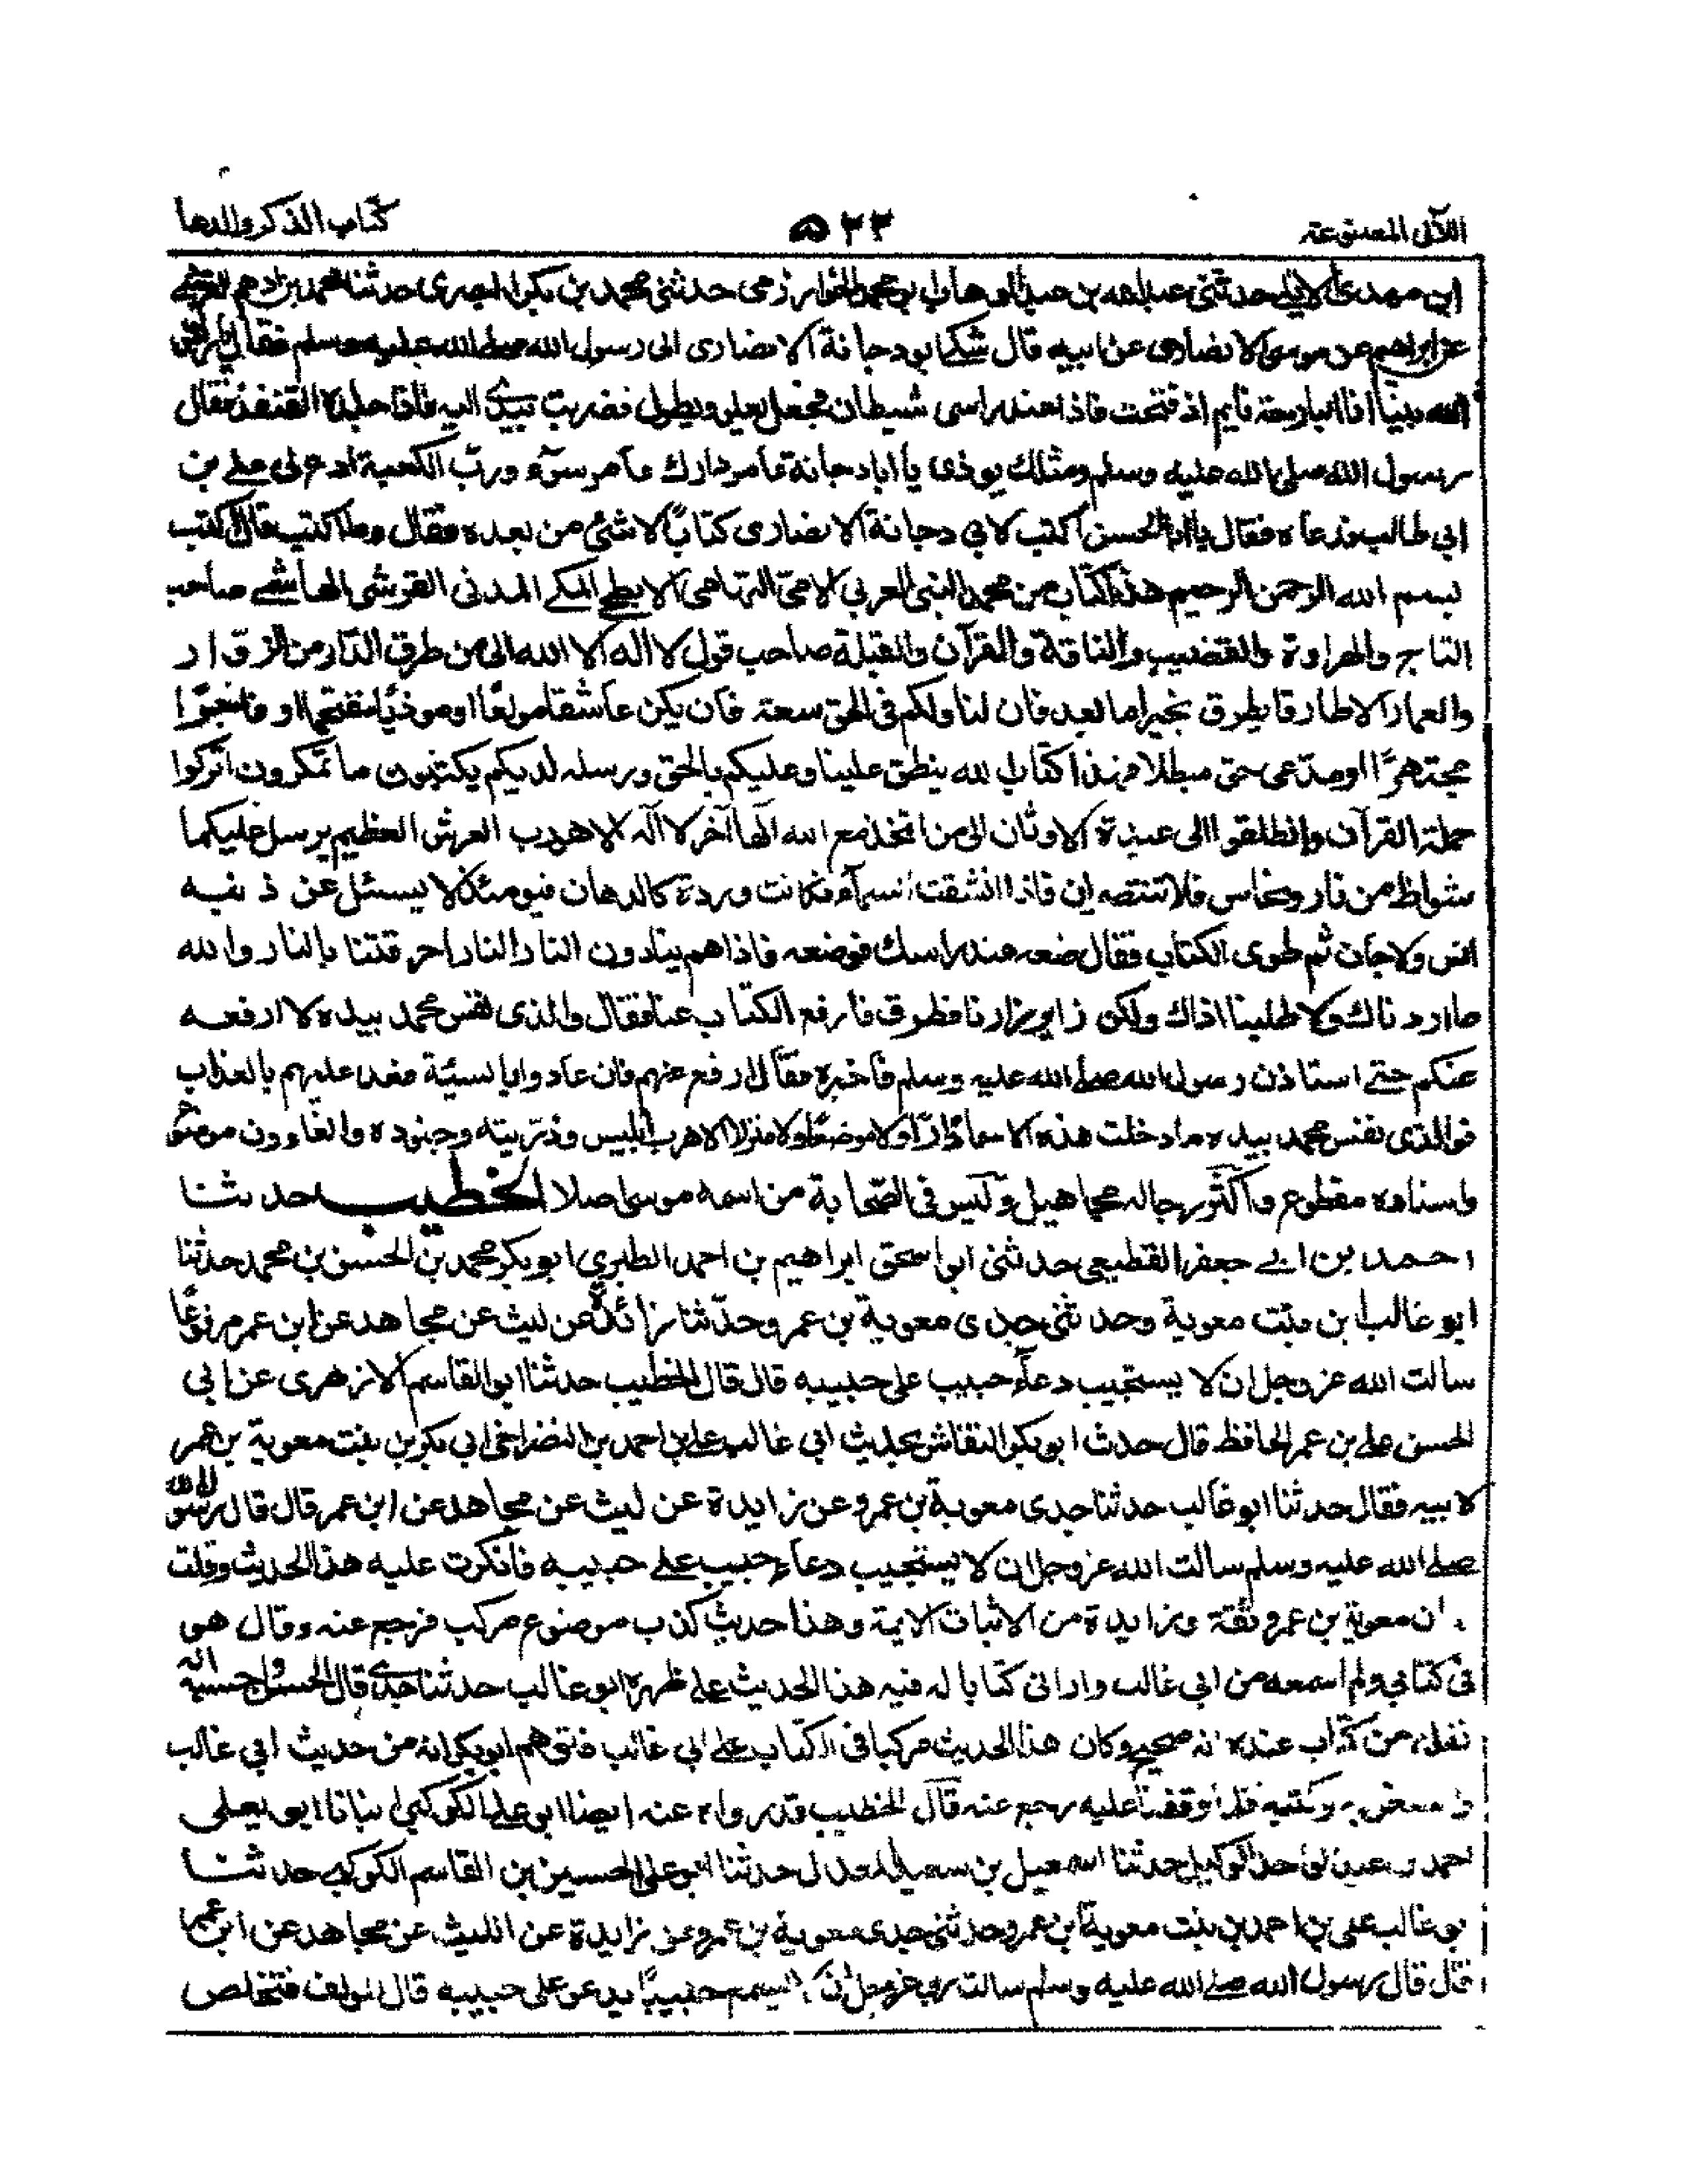 اللآلى المصنوعة
٥٢٣
كتاب الذكر والدعا
ابن مهدى الايلى حدثنى عبدالله بن عبدالوهاب ابو محمد الخوارزمى حدثنى محمد بن بكر البصرى حدثنا محمد بن ادهم القرشى
عن ابراهيم عن موسى الانصارى عن ابيه قال شكا ابو دجانة الانصارى الى رسول الله صلى الله عليه وسلم فقال
الله بينا انا البارحة نايم اذ فتحت فاذا عند راسى شيطان فجعل يعلو ويطول فضربت بيدى اليه فاذا جلده القنفذ فقال
رسول الله صلى الله عليه وسلم ومثلك يوذى يا ابا دجانة عامر دارك عامر سوء ورب الكعبة ادع لى على بن
ابى طالب فدعاه فقال يا ابا الحسن اكتب لابي دجانة الانصارى كتابًا لا شئ من بعده فقال وما اكتب قال اكتب
بسم الله الرحمن الرحيم هذا كتاب من محمد النبى العربي الامىّ التهامى الابطحى المكى المدنى القرشى الهاشمى صاحب
التاج والهراوة والقضيب والناقة والقرآن والقبلة صاحب قول لا اله الا الله الى من طرق الدّار من الزوّار
والعمار الا طارقا يطرق بخير اما بعد فان لنا ولكم فى الحق سعة فان يكن عاشقا مولعًا او موذيًا مقتحما او فاجرًا
مجتهرًا او مدعى حق مبطلا فهذا كتاب الله ينطق علينا وعليكم بالحق ورسله لديكم يكتبون ما تمكرون اتركوا
حملة القرآن وانطلقوا الى عبدة الاوثان الى من اتخذ مع الله الها آخر لا آله الا هو رب العرش العظيم يرسل عليكما
شواظ من نار ونحاس فلا تنتصران فاذا انشقت السمآء فكانت وردة كالدهان فيومئذ لا يسئل عن ذنبه
انس ولا جان ثم طوى الكتاب فقال ضعه عند راسك فوضعه فاذا هم ينادون النار النار احرقتنا بالنار والله
ما اردناك ولا طلبنا اذاك ولكن زاير زارنا فطرق فارفع الكتاب عنا فقال والذى نفس محمد بيده لا ارفعه
عنكم حتے استاذن رسول الله صلے الله عليه وسلم فاخبره فقال ارفع عنهم فان عادوا بالسيئة فعد عليهم بالعذاب
فوالذى نفس محمد بيده ما دخلت هذه الاسماء دارًا ولا موضعًا ولا منزلا الا هرب ابليس وذريته وجنوده والغاوون موضوع
واسناده مقطوع واكثر رجاله مجاهيل وليس فى الصحابة من اسمه موسى اصلا الخطيب حدثنا
احمد بن ابے جعفر القطيعى حدثنى ابو اسحق ابراهيم بن احمد الطبرى ابو بكر محمد بن الحسن بن محمد حدثنا
ابو غالب ابن بنت معوية وحدثنى جدى معوية بن عمرو حدّثنا زائدة عن ليث عن مجاهد عن ابن عمر مرفوعًا
سالت الله عز وجل ان لا يستجيب دعآء حبيب على حبيبه قال قال الخطيب حدثنا ابو القاسم الازهرى عن ابي
الحسن على بن عمر الحافظ قال حدث ابو بكر النقاش بحديث ابى غالب على بن احمد بن النضر اخى ابى بكر بن بنت معوية بن عمر
لابيه فقال حدثنا ابو غالب حدثنا جدى معوية بن عمرو عن زايدة عن ليث عن مجاهد عن ابن عمر قال قال رسول الله
صلے الله عليه وسلم سالت الله عز وجل ان لا يستجيب دعاء حبيب على حبيبه فأنكرت عليه هذا الحديث وقلت
ان معوية بن عمرو ثقة وزايدة من الاثبات الايمة وهذا حديث كذب موضوع مركب فرجع عنه وقال هو
فى كتابي ولم اسمعه من ابي غالب وارانى كتابا له فيه هذا الحديث على ظهره ابو غالب حدثنا جدى قال الحسن واحسبه انه
نقله من كتاب عنده انه صحيح وكان هذا الحديث مركبا فى الكتاب على ابي غالب فتوهم ابو بكر انه من حديث ابى غالب
وكتبه فلما وقفنا عليه رجع عنه قال الخطيب قد رواه عنه ايضا ابو على الكوكبى انبانا ابو يعلى
احمد بن عبد الواحد الوكيل حدثنا اسمعيل بن سعيد المعدل حدثنا ابو على الحسين بن القاسم الكوكبى حدثنا
ابو غالب على بن احمد بن بنت معوية ابن عمرو حدثنى جدى معوية بن عمرو عن زايدة عن الليث عن مجاهد عن ابن عمر
قال قال رسول الله صلے الله عليه وسلم سالت ربى عز وجل ان لا يسمع حبيبًا يدعو على حبيبه قال المولف فتخلص